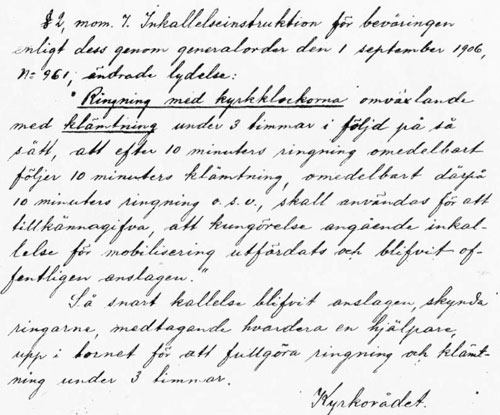 § 2, mom. 7. Inkallelseinstruktion för beväringen
enligt dess genom generalorder den 1 september 1906,
No 961, ändrade lydelse:
"Ringning med kyrkklockorna omväxlande
med klämtning under 3 timmar i följd på så
sätt, att efter 10 minuters ringning omedelbart
följer 10 minuters klämtning, omedelbart därpå
10 minuters ringning o.s.v., skall användas för att
tillkännagifva, att kungörelse angående inkal-
lelse för mobilisering utfördats och blifvit of-
fentligen anslagen."
Så snart kallelse blifvit anslagen, skynda
ringarne, medtagande hvardera en hjälpare,
upp i tornet för att fullgöra ringning och klämt-
ning under 3 timmar.
Kyrkorådet.